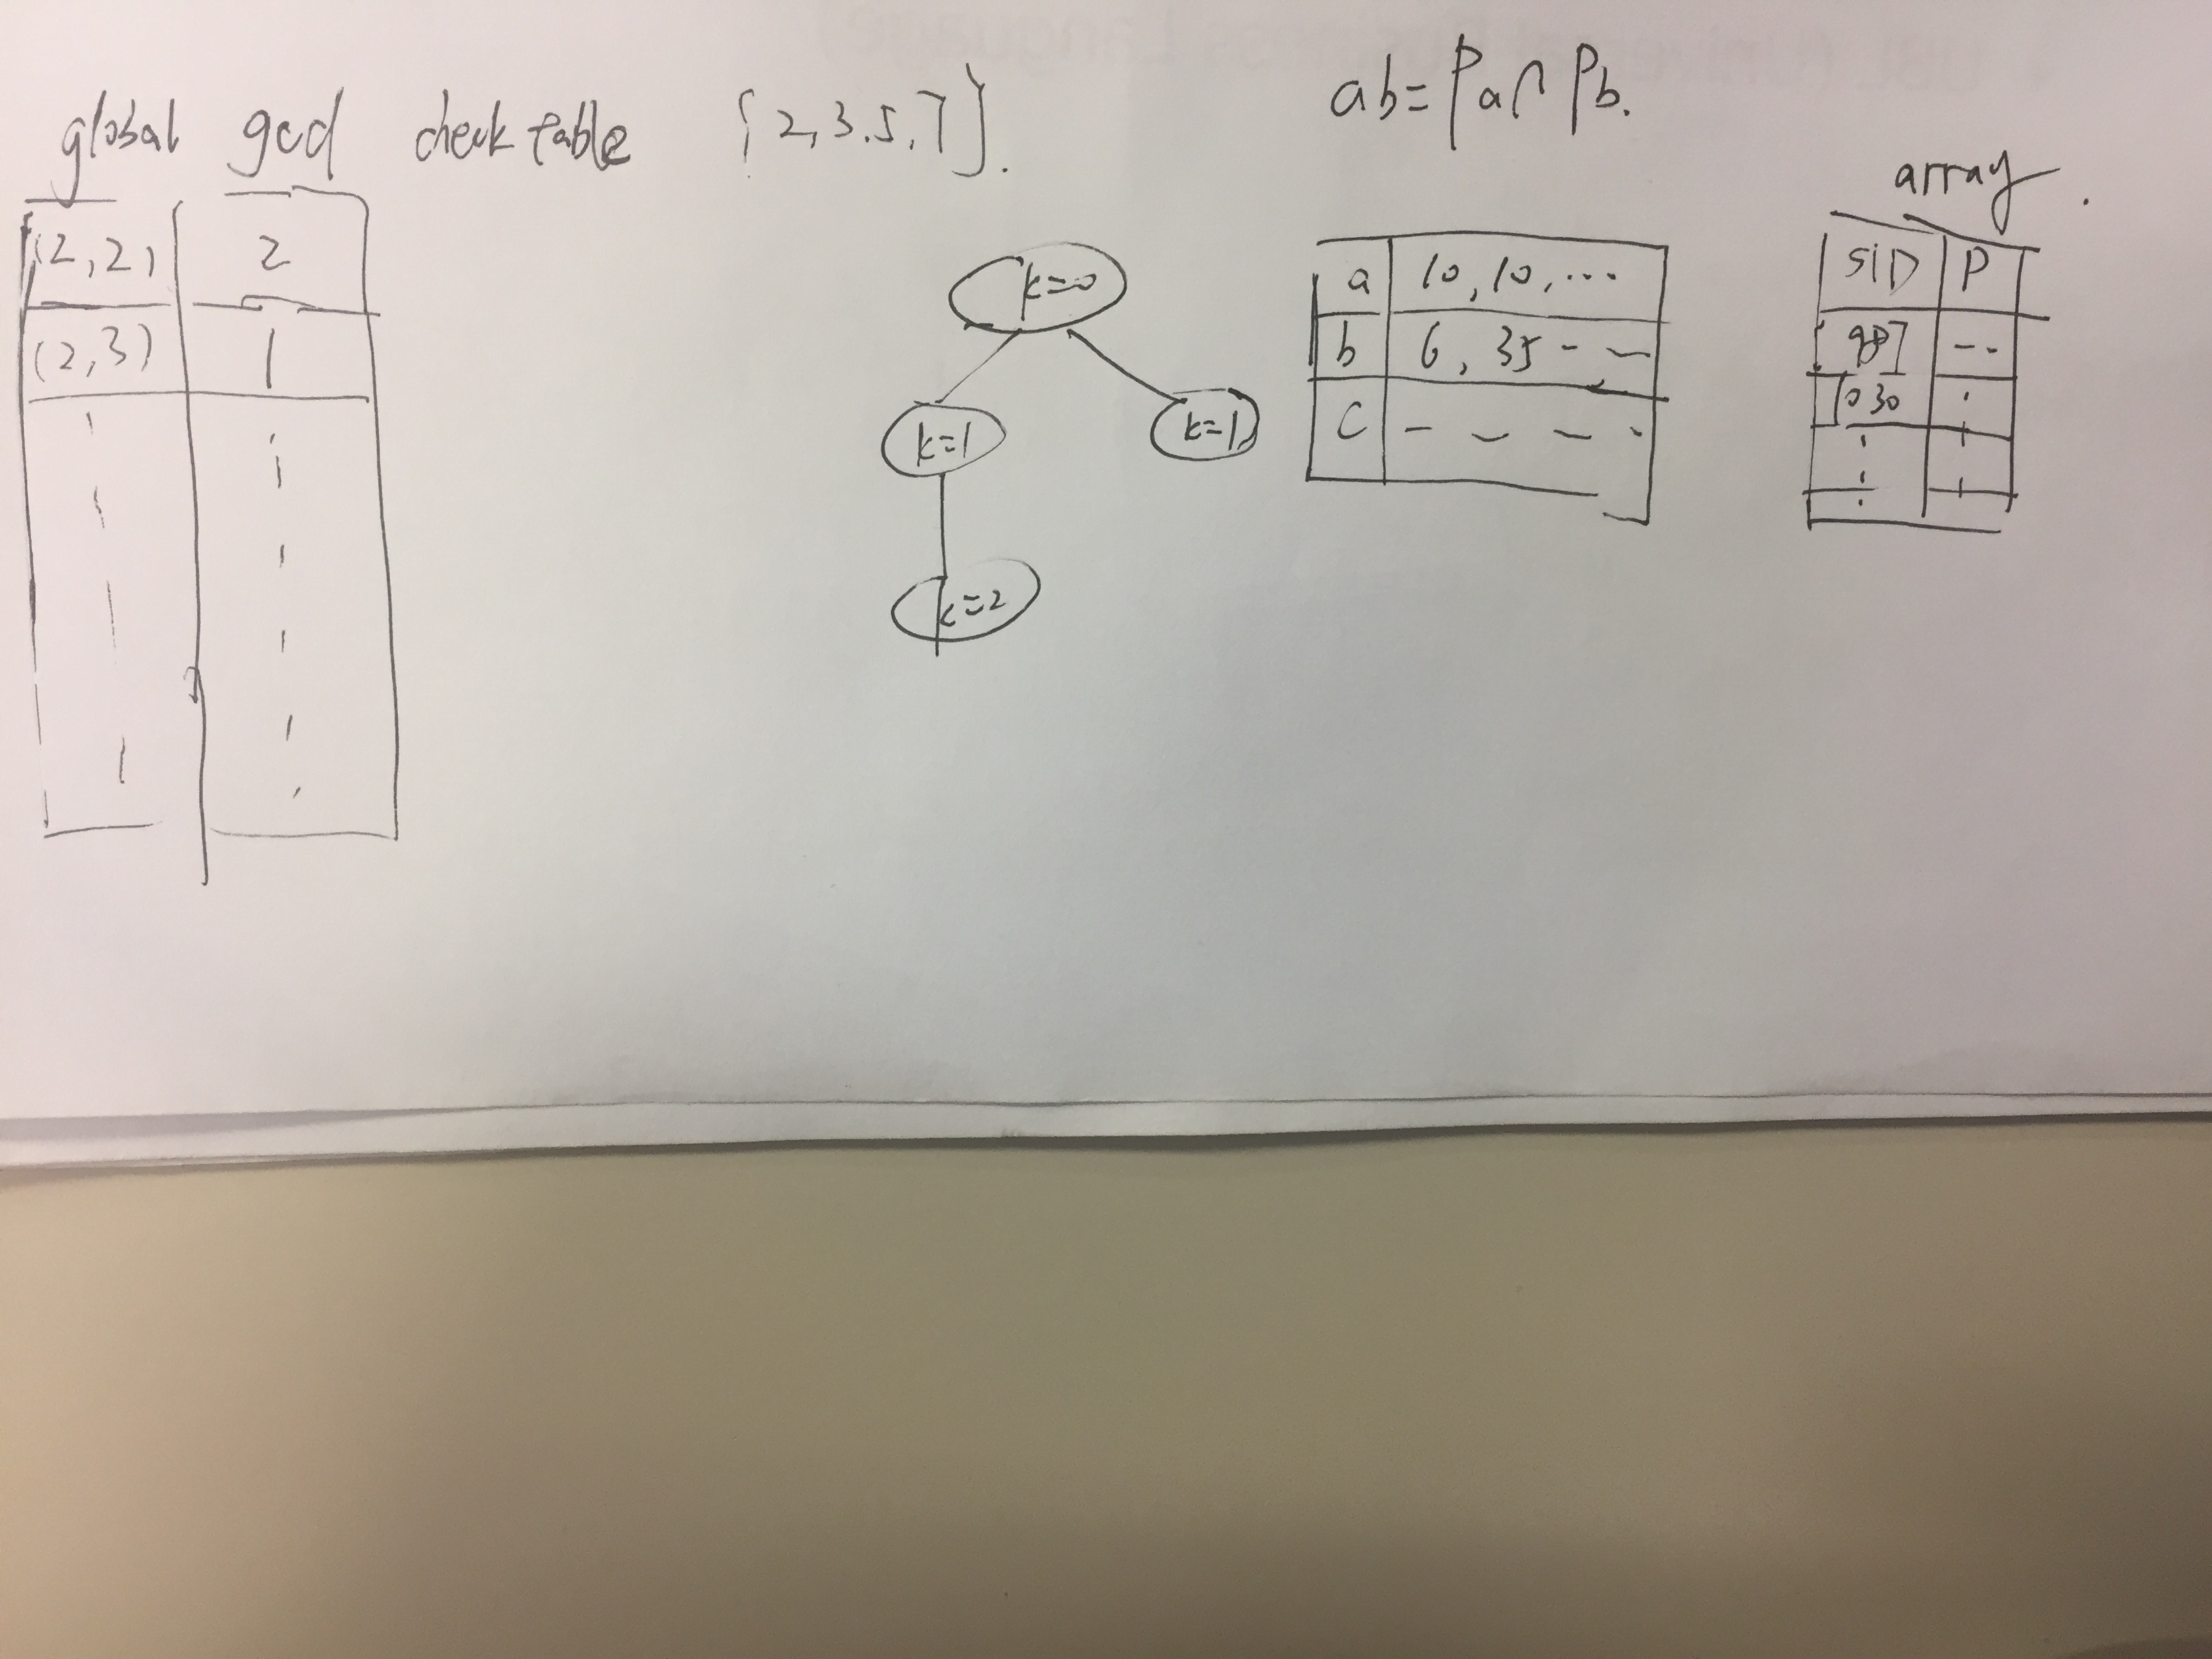 global gcd check table {2,3.5,7}.
(2,2) 2
(2,3) 1
k=0
k=1 k=1
k=2
ab=Pa∩Pb.
a 10,10,...
b 6, 35 - -
c - - - -
array.
SID P
987 --
030